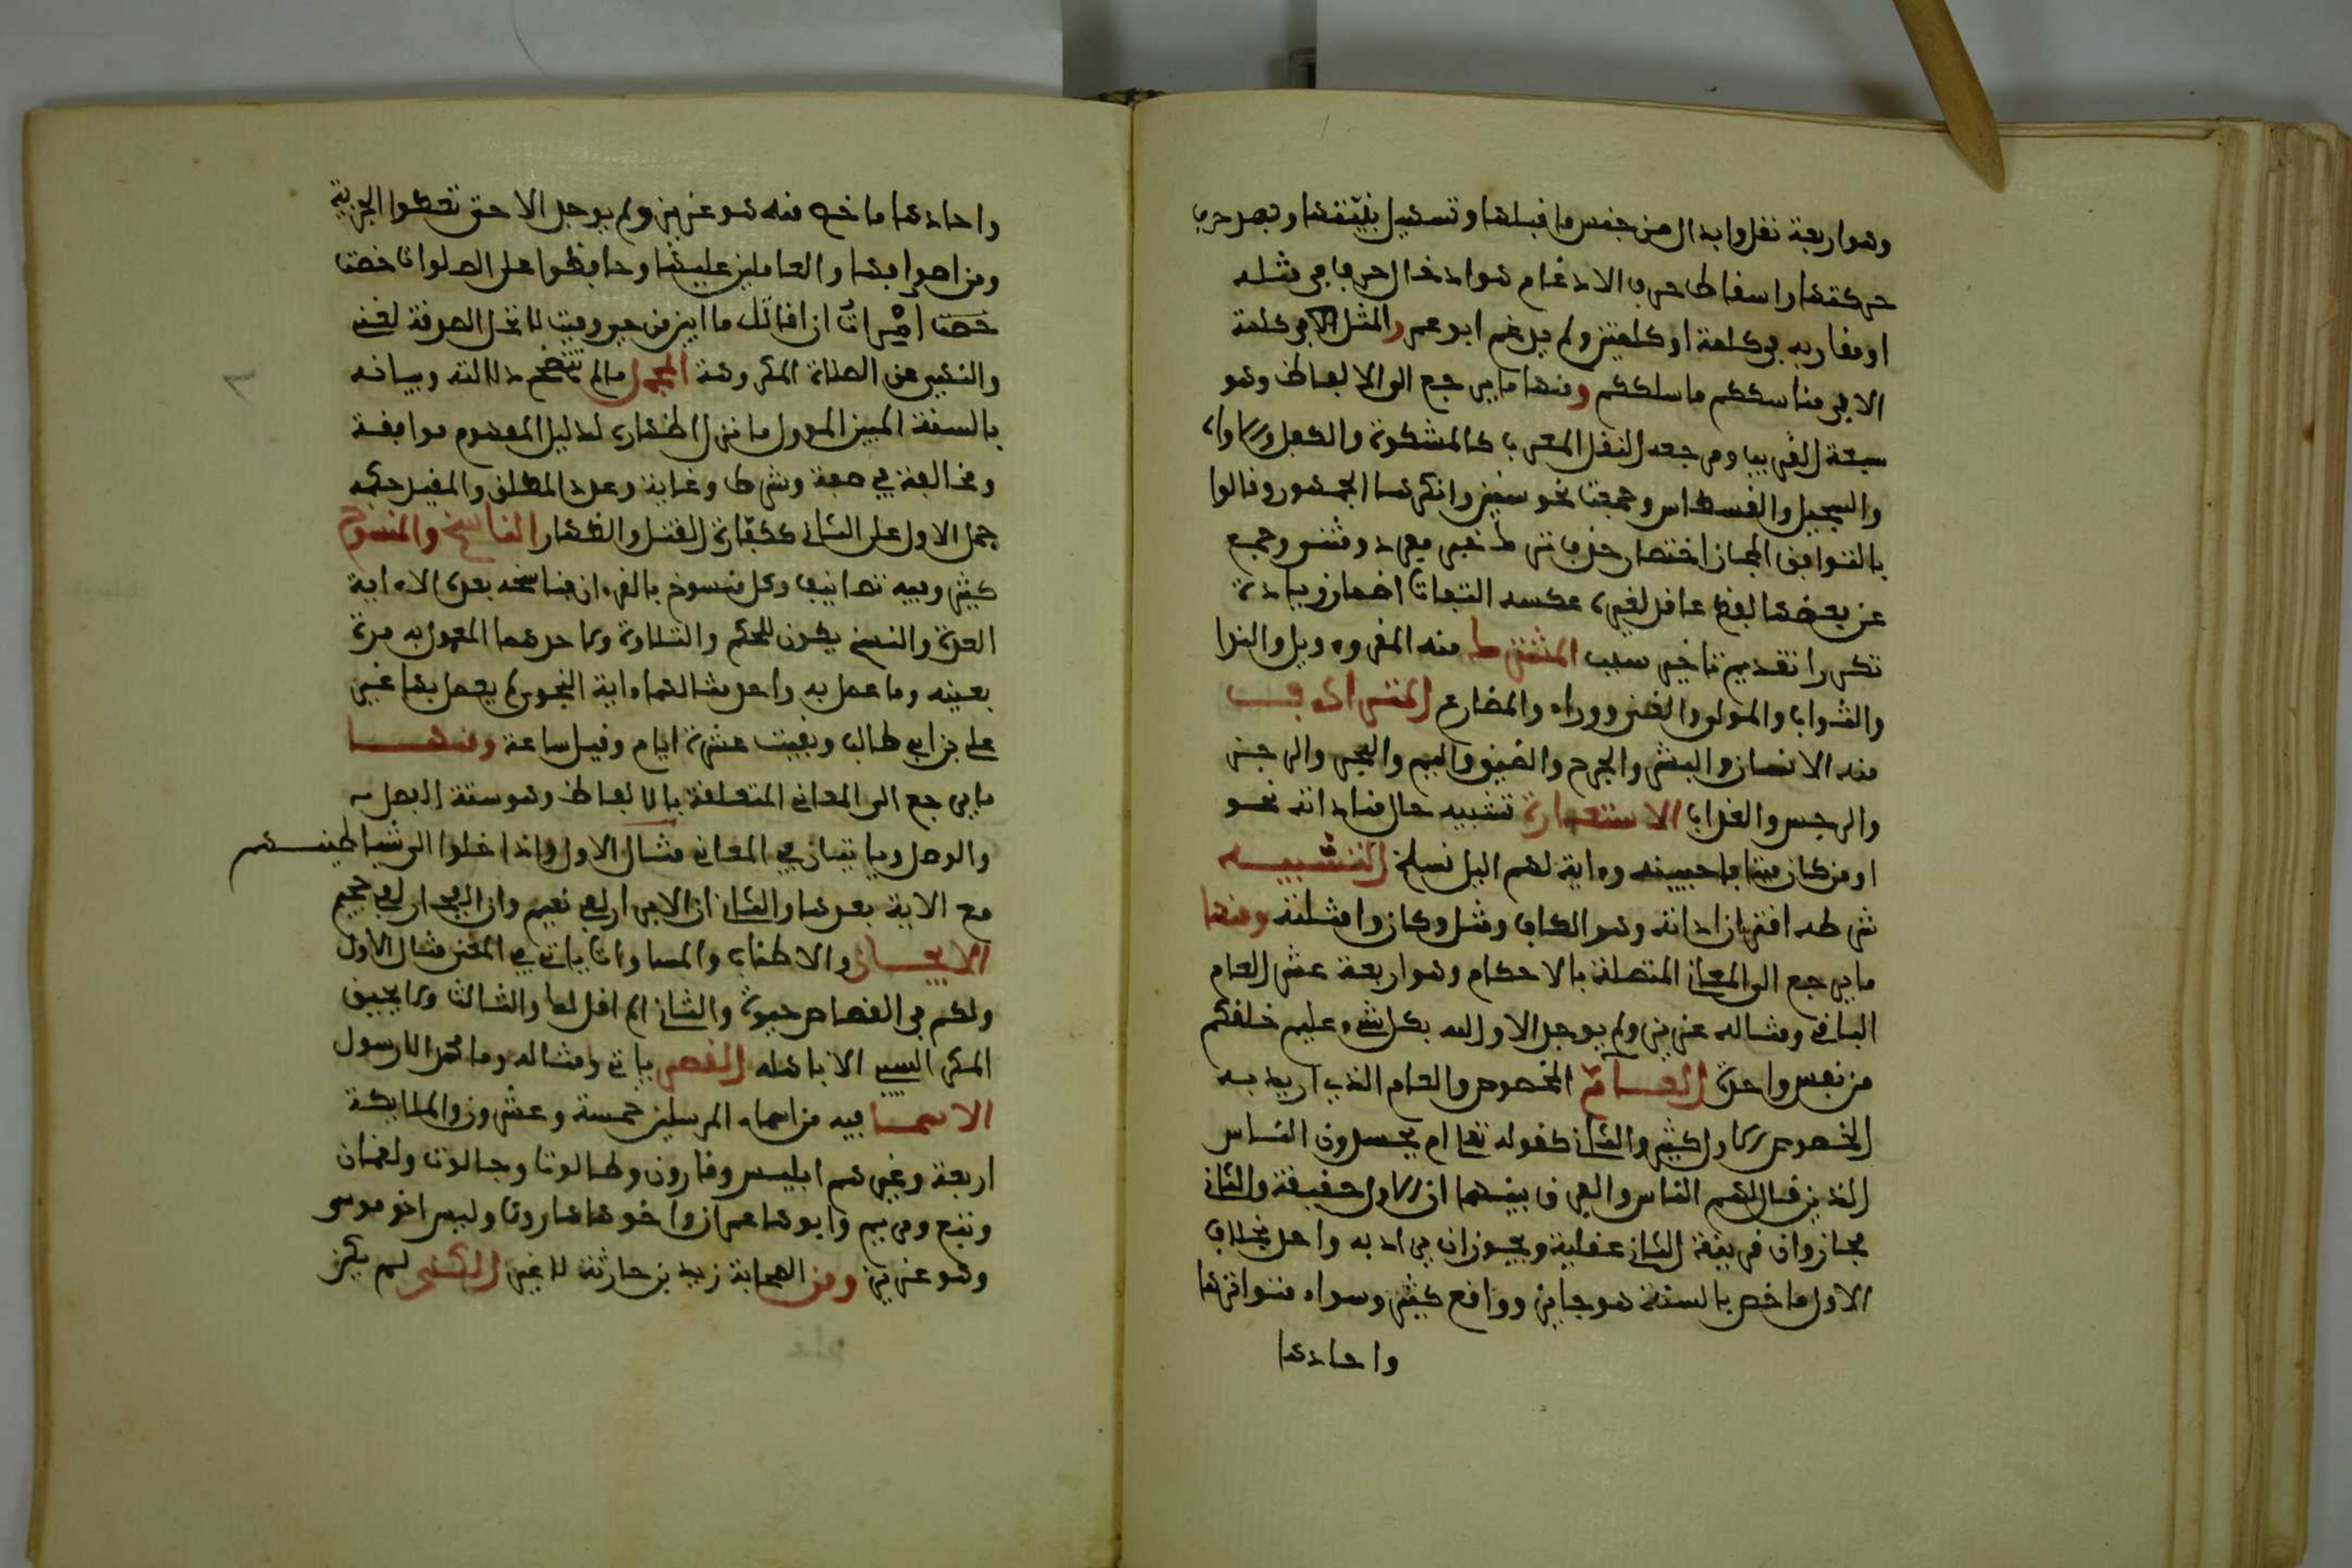 وهو اربعة نقل وابدال من جنس ما قبلها وتسهيل بينها وبين حرف
حركتها واسقاط حرف الادغام هو ادخال حرف في مثله
او مقاربه في كلمة او كلمتين ولم يدغم ابو عمرو المثل الا في كلمة
الا في مناسككم ما سلككم ومنها ما يرجع الى الالفاظ وهو
سبعة الغريب ومرجعه النقل المعرب كالمشكوة والكفل والاواه
والسجيل والقسطاس وجمعت نحو ستين وانكرها الجمهور وقالوا
بالتوافق المجاز اختصار حذف ترك خبر مفرد ومثنى وجمع
عن بعضها لفظ عاقل لغيره عكسه التفات اضمار زيادة
تكرير تقديم تاخير سبب المشترك منه القرء وويل والند
والتواب والمولى والغي ووراء والمضارع المترادف
منه الانسان والبشر والحرج والضيق واليم والبحر والرجز
والرجس والعذاب الاستعارة تشبيه خال من اداته نحو
او من كان ميتا فاحييناه وءاية لهم اليل نسلخ التشبيه
شرطه اقتران اداته وهو الكاف ومثل وكان وامثلته ومنها
ما يرجع الى المعاني المتعلقة بالاحكام وهو اربعة عشر العام
الباقي ومثاله عزيز ولم يوجد الا والله بكل شيء عليم خلقكم
من نفس واحدة العام المخصوص والعام الذي اريد به
الخصوص الاول كثير والثاني كقوله تعا ام يحسدون الناس
الذين قال لهم الناس والفرق بينهما ان الاول حقيقة والثاني
مجاز وان قرينة الثاني عقلية ويجوز ان يراد به واحد بخلاف
الاول ما خص بالسنة هو جايز وواقع كثير وسواء متواترها
واحادها
واحادها ما خص منه هو عزيز ولم يوجد الا حتى تعطوا الجزية
ومن اصوافها والعاملين عليها وحافظوا على الصلوات خصت
خصت امرت ان اقاتل ما ابين من حي فميت لا تحل الصدقة لغني
والنهي عن الصلاة المكروهة المجمل ما لم تتضح دلالته وبيانه
بالسنة المبين المؤول ما ترك ظاهره لدليل المفهوم موافقة
ومخالفة في صفة وشرط وغاية وعدد المطلق والمقيد حكمه
حمل الاول على الثاني ككفارة القتل والظهار الناسخ والمنسوخ
كثير وفيه تصانيف وكل منسوخ بالقرءان فناسخه بعده الا ءاية
العدة والنسخ يكون للحكم والتلاوة ولاحدهما المعمول به مدة
بعينه وما عمل به واحد مثالهما ءاية النجوى لم يعمل بها غير
علي بن ابي طالب وبقيت عشرة ايام وقيل ساعة ومنها
ما يرجع الى المعاني المتعلقة بالالفاظ وهو ستة الفصل
والوصل وياتيان في المعاني مثال الاول واذا خلوا الى شياطينهم
مع الاية بعدها والثاني ان الابرار لفي نعيم وان الفجار لفي جحيم
الايجاز والاطناب والمساوات ياتي في المعنى مثال الاول
ولكم في القصاص حيوة والثاني الم اقل لك والثالث ولا يحيق
المكر السيئ الا باهله القصر ياتي ومثاله وما محمد الا رسول
الاسما فيه من اسماء المرسلين خمسة وعشرون والملايكة
اربعة وغيرهم ابليس وقارون وطالوت وجالوت ولقمان
وتبع ومريم وابوها عمران واخوها هارون وليس اخو موسى
وهو عزيز ومن الصحابة زيد بن حارثة لا غير الكنى لم يكن